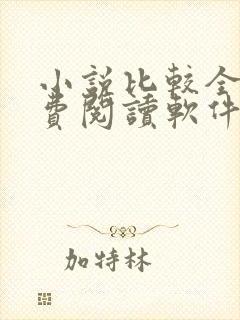 小説比較全
費閱讀軟件
加特林